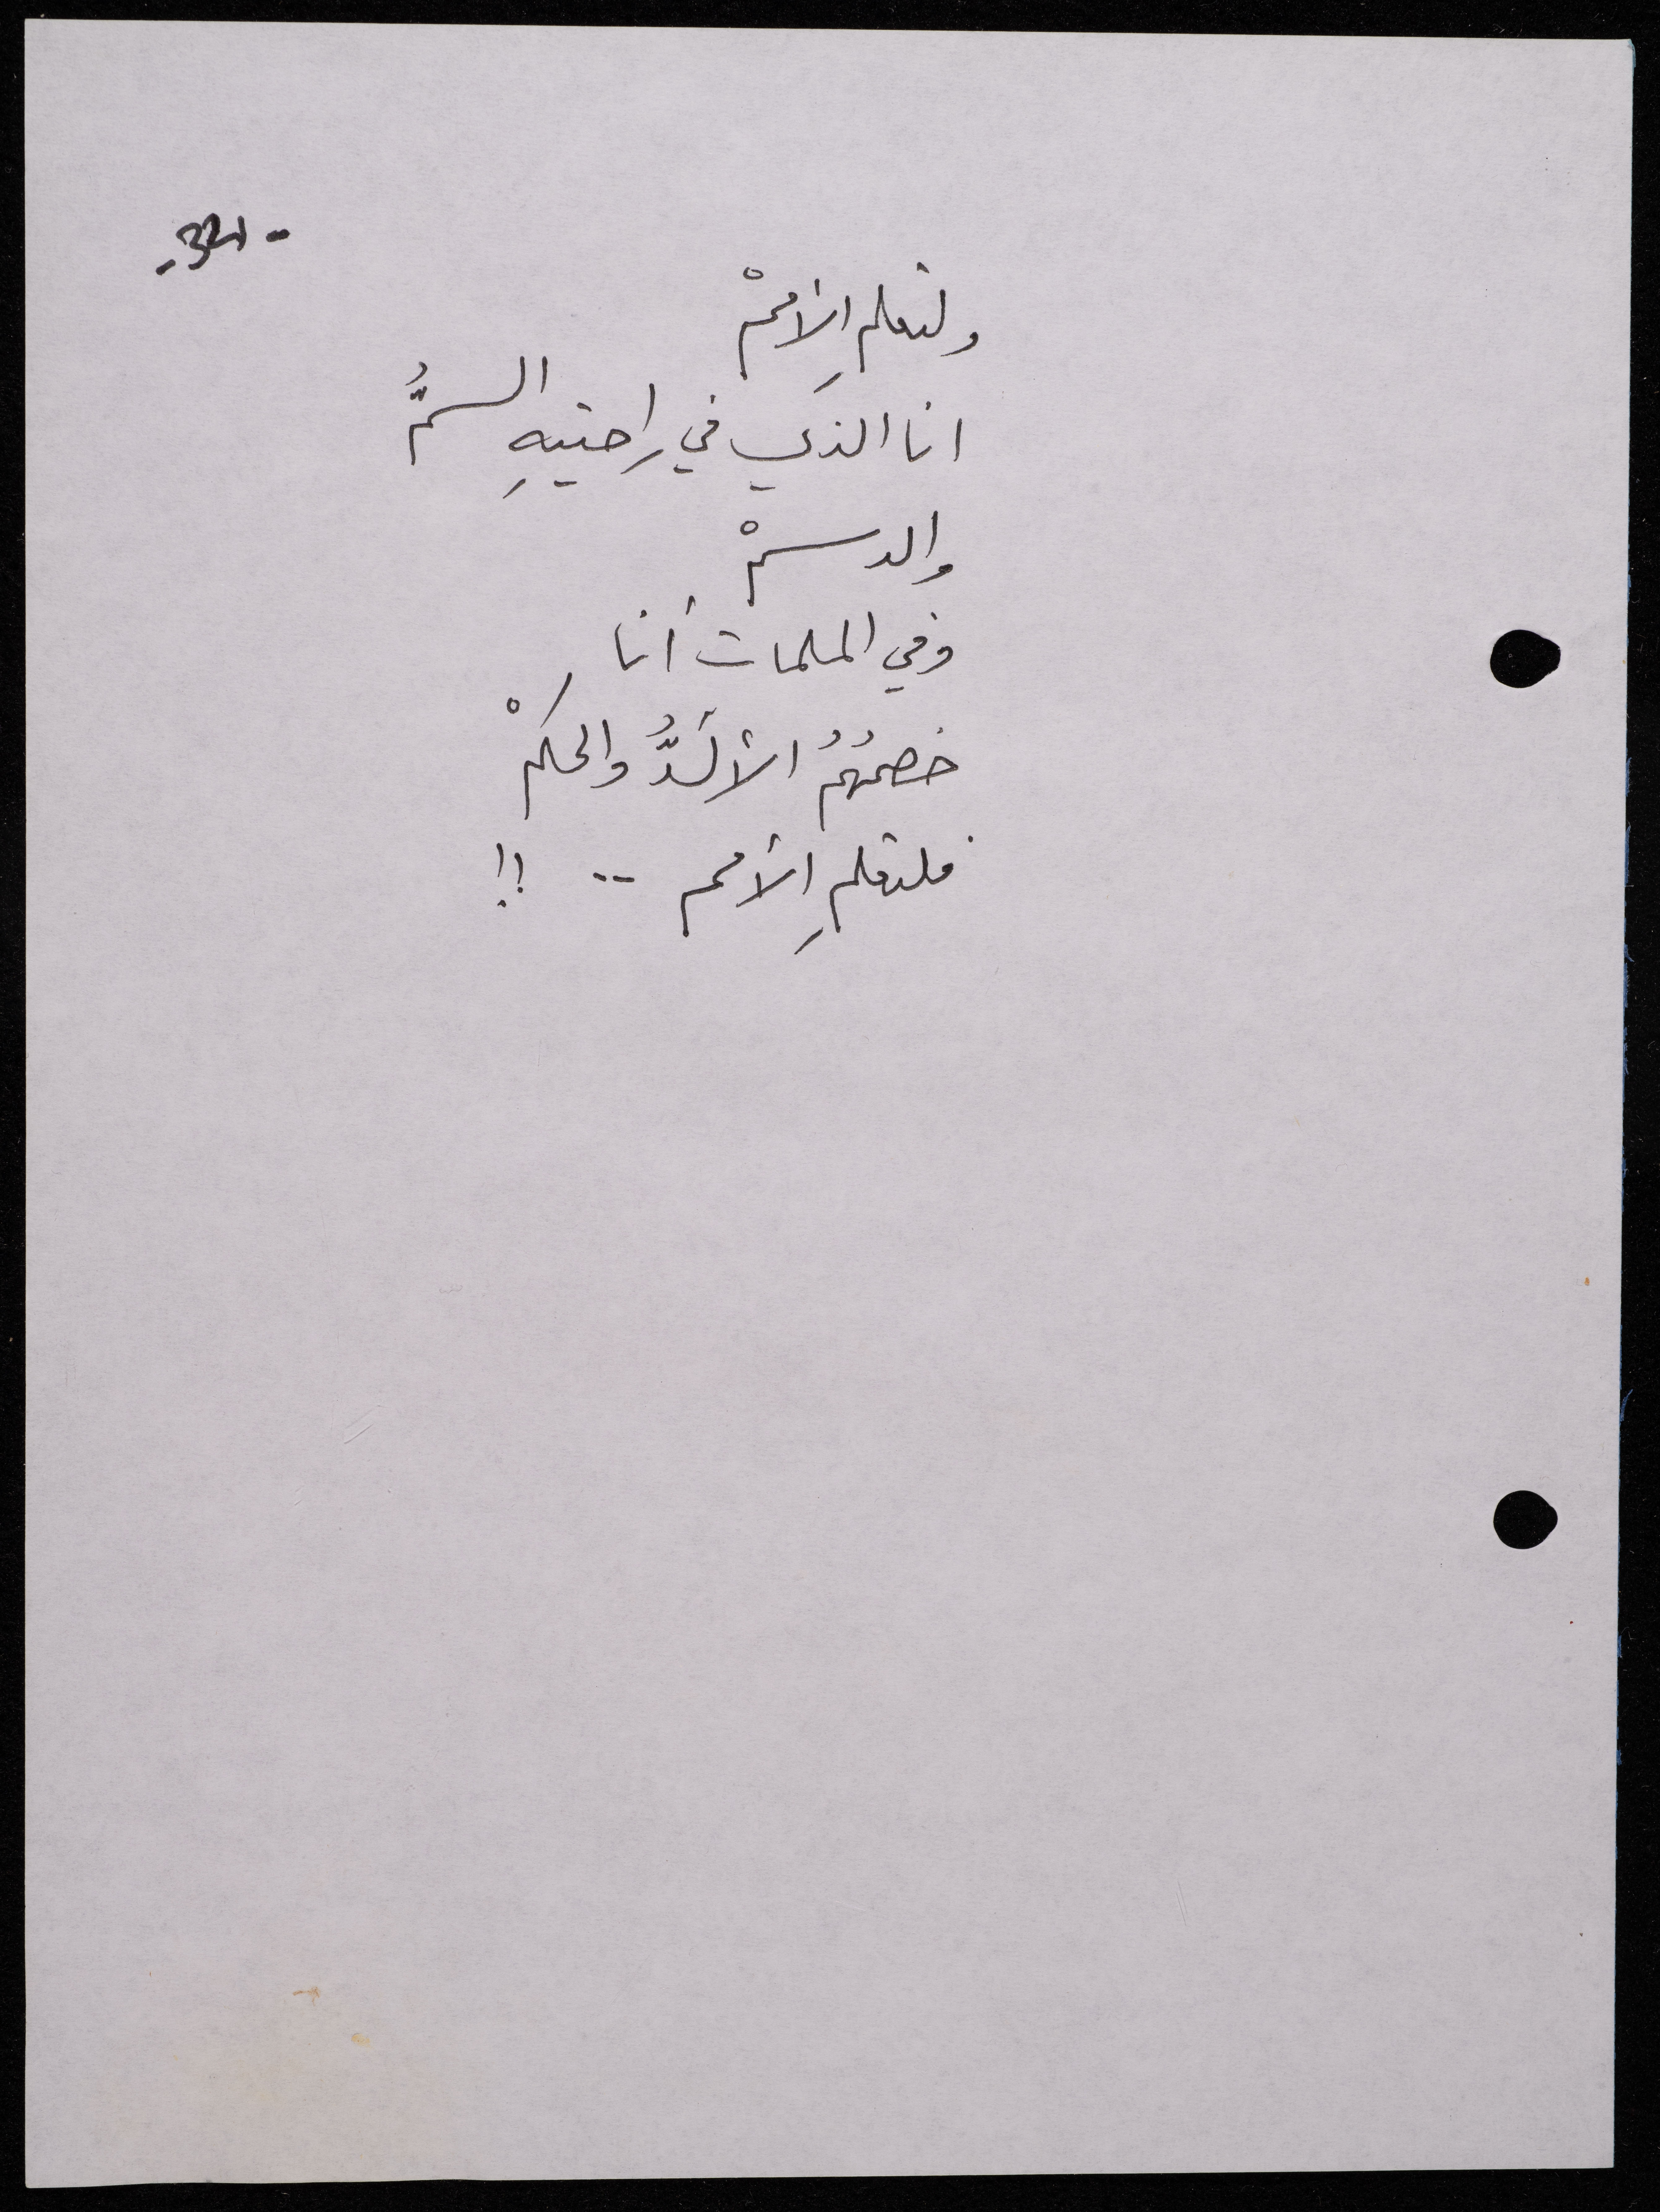 ولتعلمِ الأممْ
انا الذي في راحتيهِ السمُّ
والدسمْ
وفي الملمات أنا
خصمُهُمُ الألَدُّ والحكمْ
فلتعلمِ الأمم .. !!